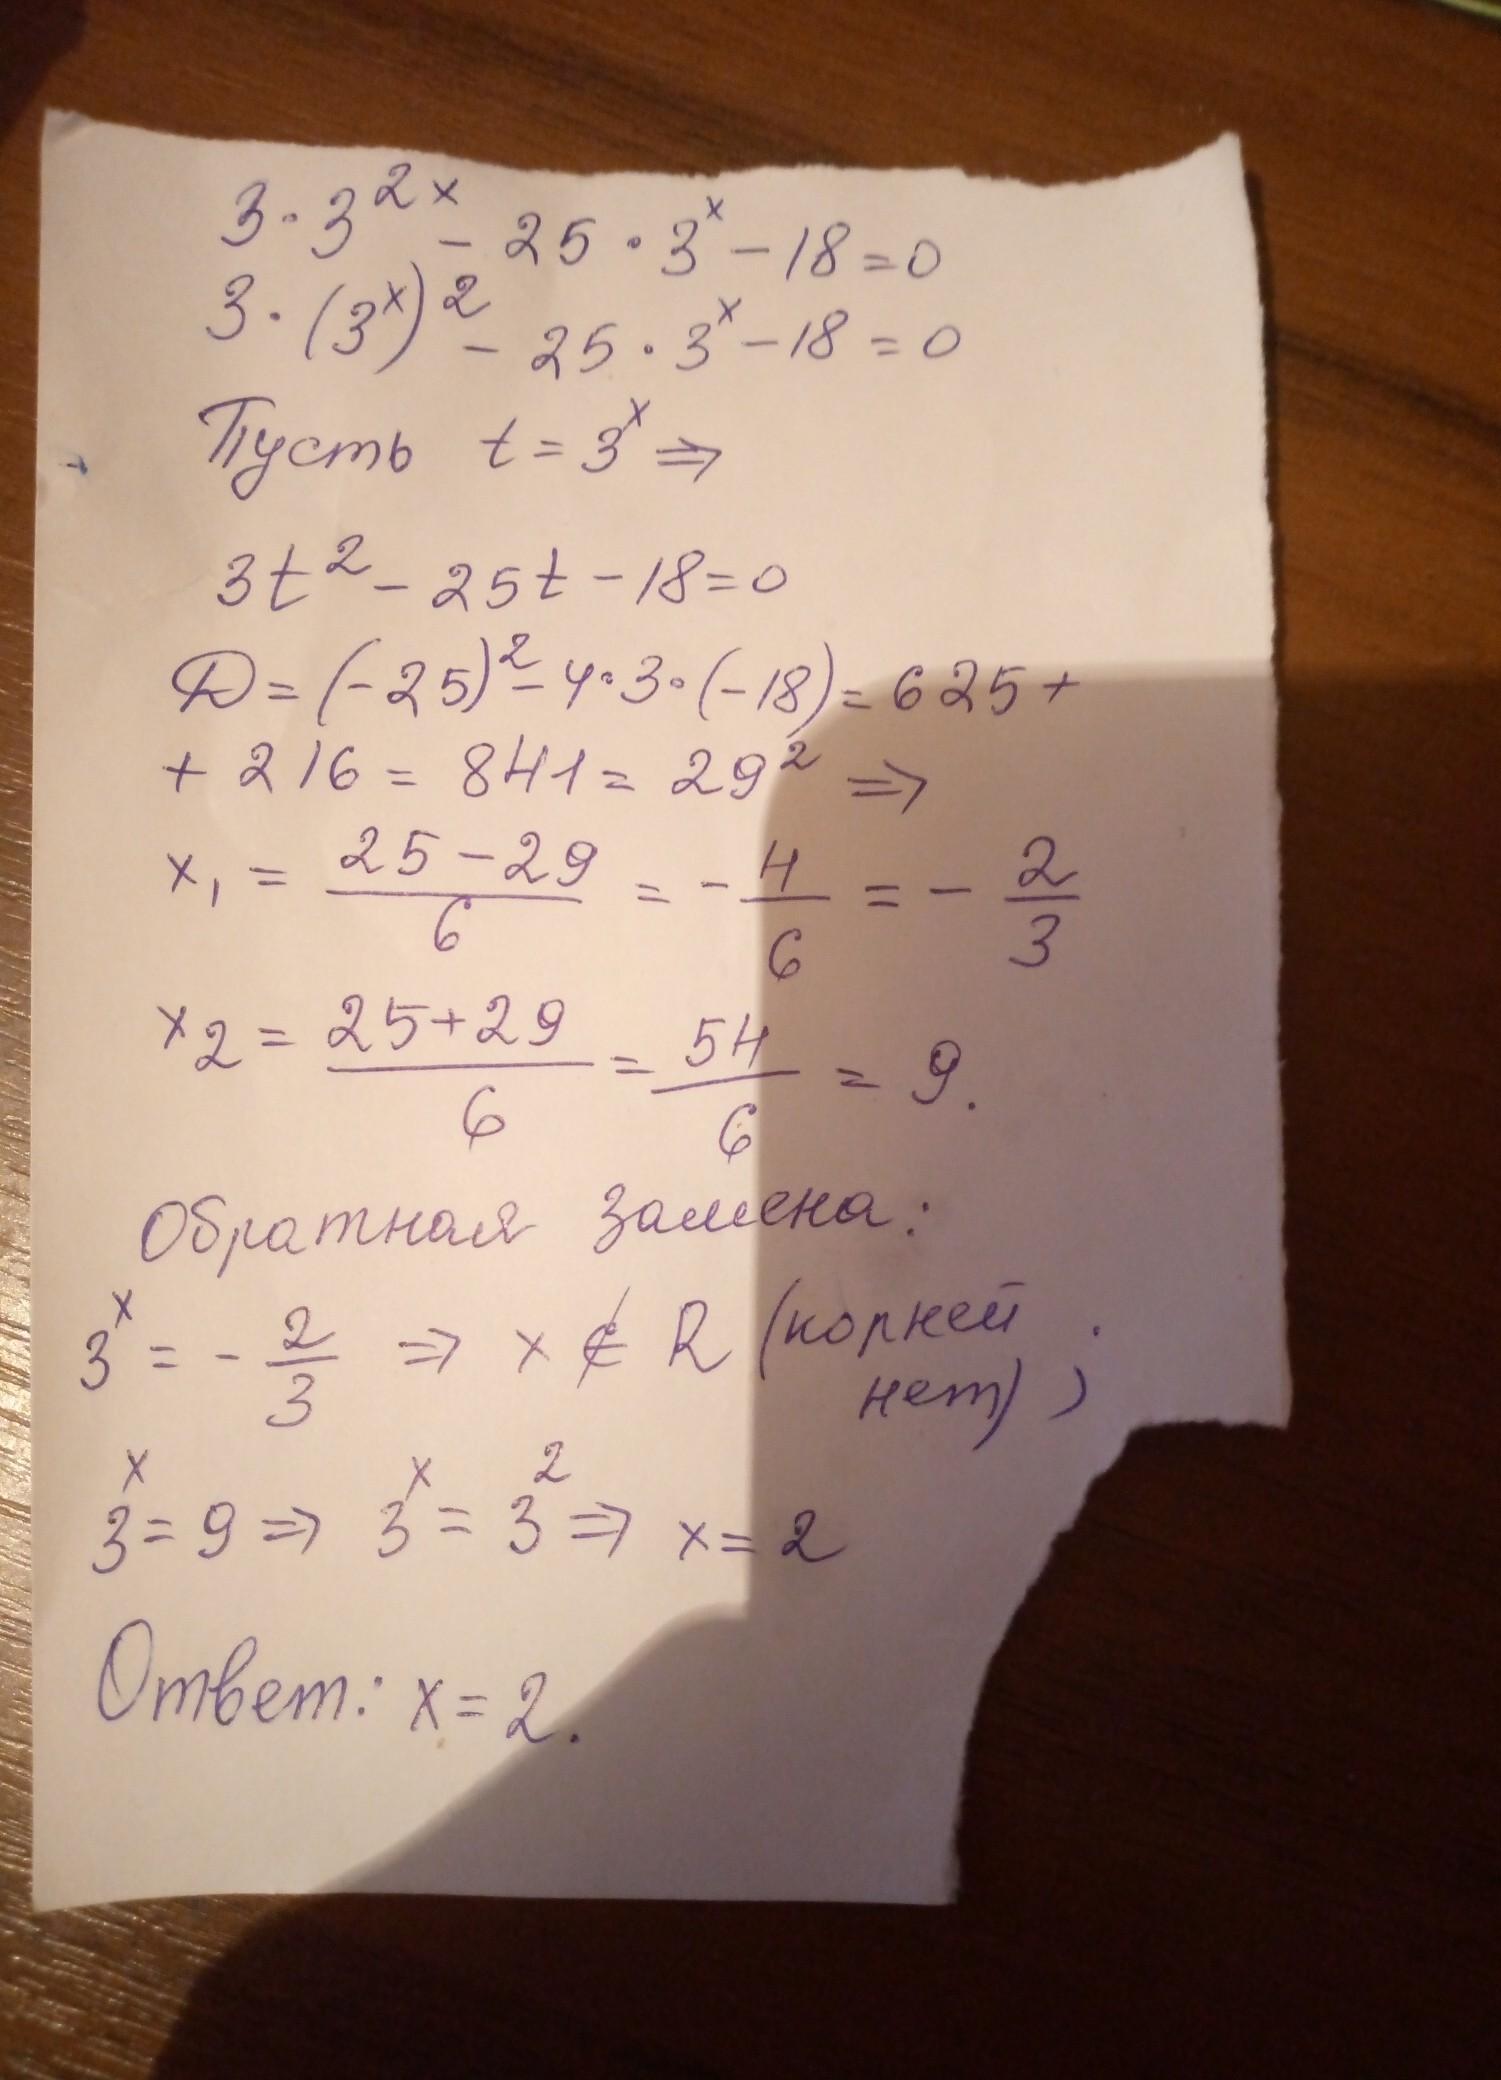 3 · 3^{2x} - 25 · 3^x - 18 = 0
3 · (3^x)^2 - 25 · 3^x - 18 = 0
Пусть t = 3^x ⇒
3t^2 - 25t - 18 = 0
D = (-25)^2 - 4 · 3 · (-18) = 625 +
+ 216 = 841 = 29^2 ⇒
x_1 = \frac{25 - 29}{6} = -\frac{4}{6} = -\frac{2}{3}
x_2 = \frac{25 + 29}{6} = \frac{54}{6} = 9.
Обратная замена:
3^x = -\frac{2}{3} ⇒ x ∉ R (корней
нет),
3^x = 9 ⇒ 3^x = 3^2 ⇒ x = 2
Ответ: x = 2.